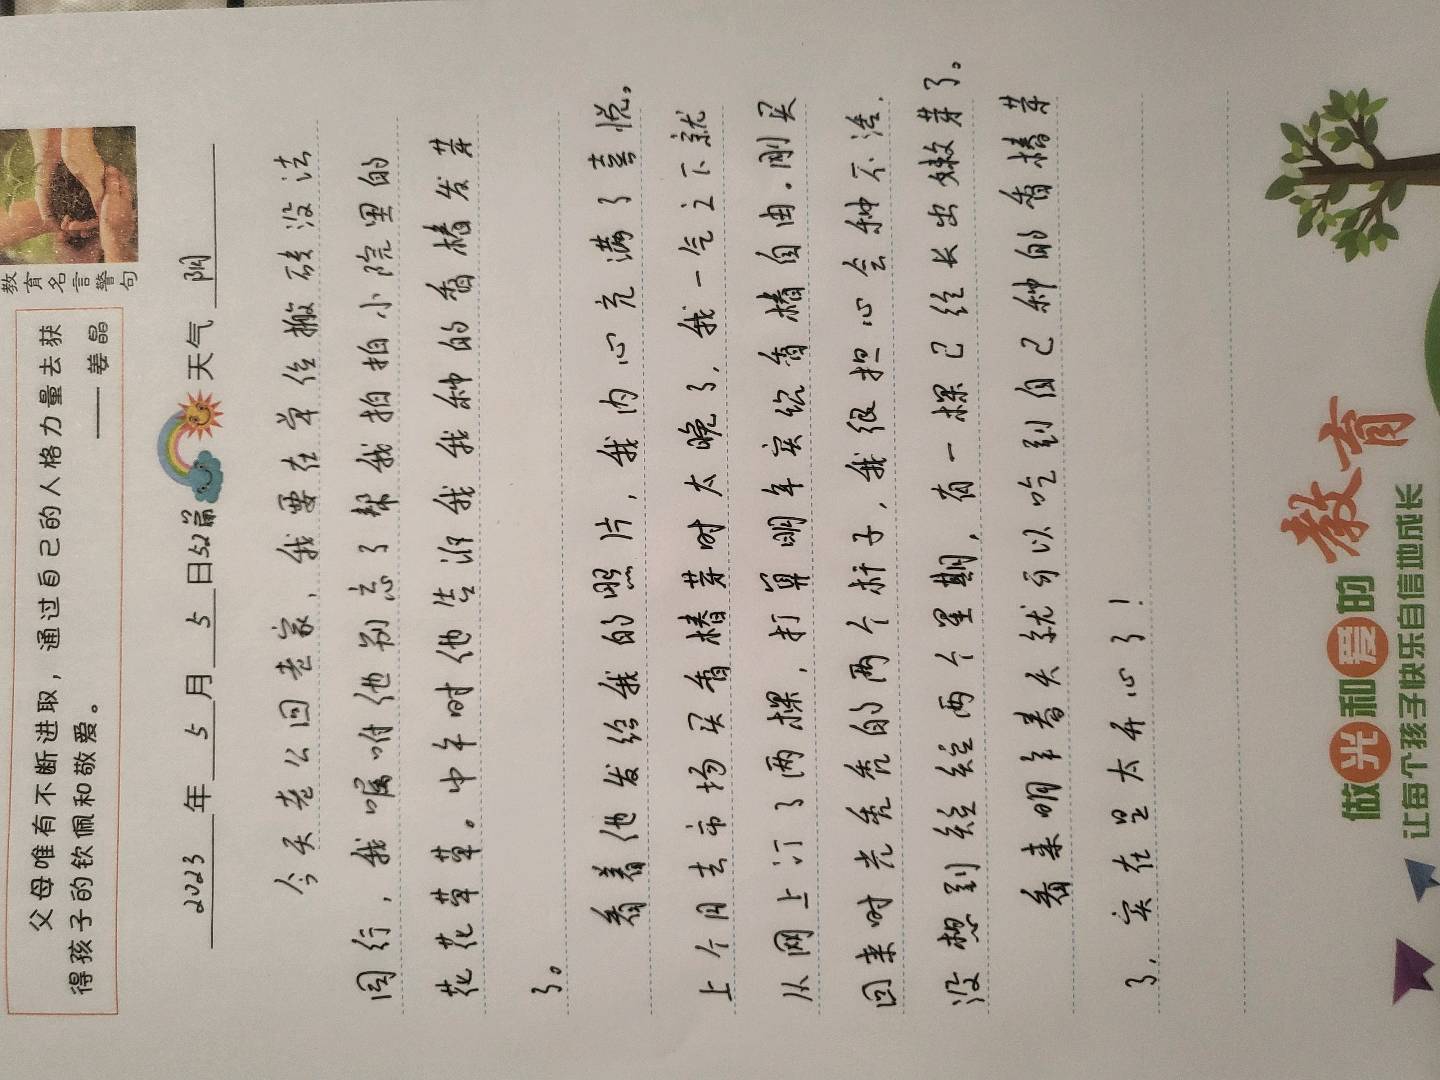 父母唯有不断进取，通过自己的人格力量去获
得孩子的钦佩和敬爱。
——姜晶
教育名言警句
2023年5月5日52篇 天气 阴
今天老公回老家，我要在单位搬砖没法
同行，我嘱咐他别忘了帮我拍拍小院里的
花花草草。中午时他告诉我我种的香椿发芽
了。
看着他发给我的照片，我内心充满了喜悦。
上个月去市场买香椿芽时太晚了，我一气之下就
从网上订了两棵，打算明年实现香椿自由。刚买
回来时光秃秃的两个杆子，我很担心会种不活，
没想到经经两个星期，有一棵已经长出嫩芽了。
看来明年春天就可以吃到自己种的香椿芽
了，实在是太开心了！
做光和爱的教育
让每个孩子快乐自信地成长